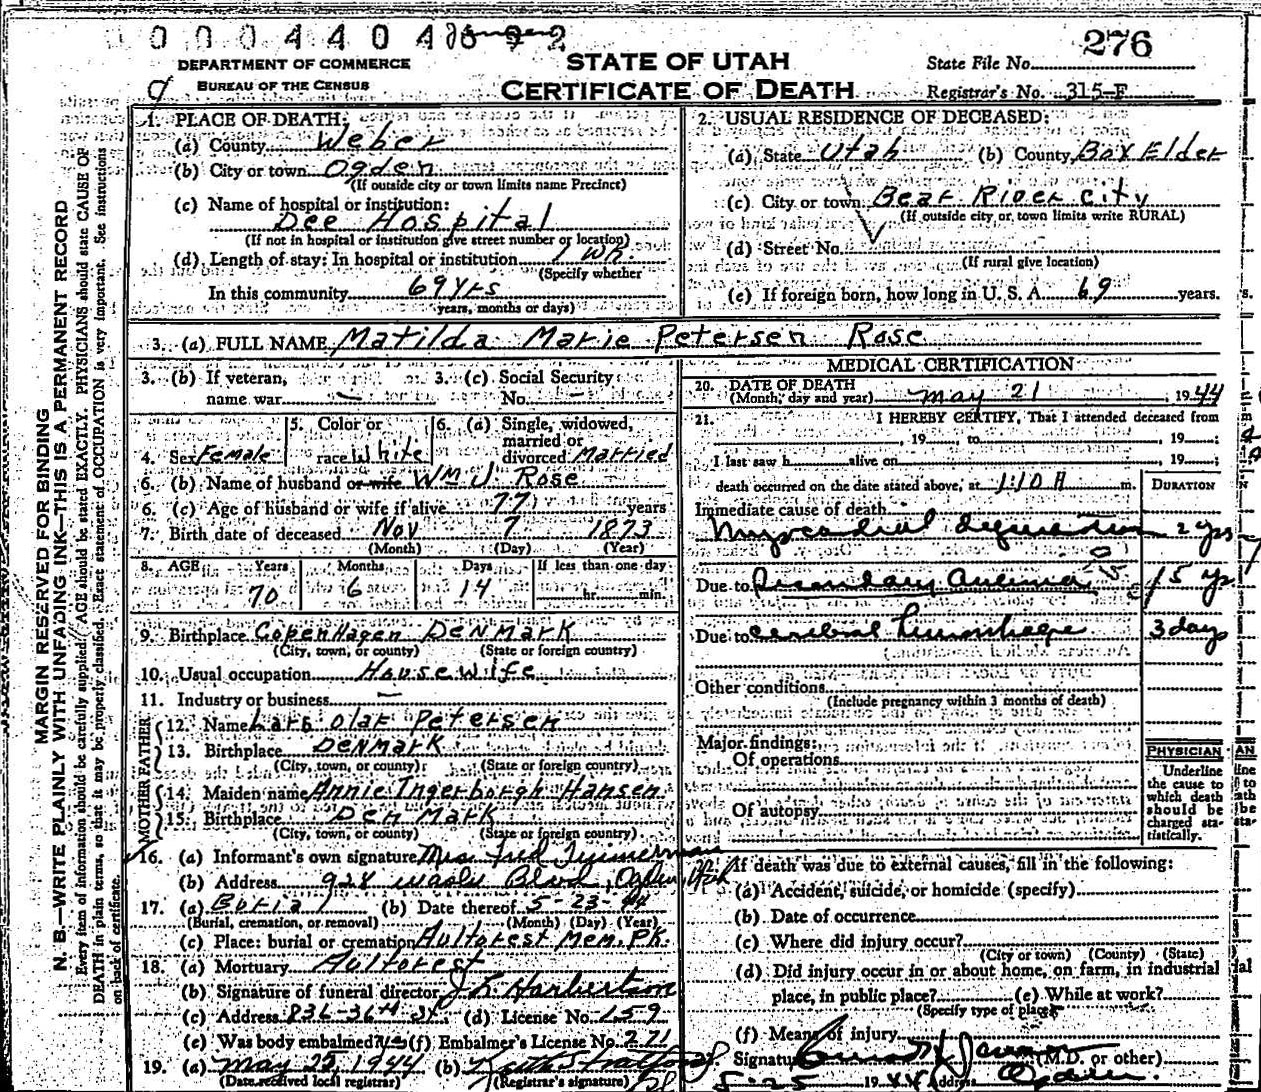 0 0 0 4 4 0 4
276
DEPARTMENT OF COMMERCE
BUREAU OF THE CENSUS
STATE OF UTAH
CERTIFICATE OF DEATH
State File No.
Registrar's No. 315-F
MARGIN RESERVED FOR BINDING
N. B.—WRITE PLAINLY WITH UNFADING INK—THIS IS A PERMANENT RECORD
Every item of information should be carefully supplied. AGE should be stated EXACTLY. PHYSICIANS should state CAUSE OF
DEATH in plain terms, so that it may be properly classified. Exact statement of OCCUPATION is very important. See instructions
on back of certificate.
1. PLACE OF DEATH:
(a) County Weber
(b) City or town Ogden
(If outside city or town limits name Precinct)
(c) Name of hospital or institution:
Dee Hospital
(If not in hospital or institution give street number or location)
(d) Length of stay: In hospital or institution 1 Wk.
(Specify whether
In this community 69 Yrs
years, months or days)
2. USUAL RESIDENCE OF DECEASED:
(a) State Utah (b) County Box Elder
(c) City or town Bear River City
(If outside city or town limits write RURAL)
(d) Street No.
(If rural give location)
(e) If foreign born, how long in U. S. A. 69 years.
3. (a) FULL NAME Matilda Marie Petersen Rose
3. (b) If veteran, 3. (c) Social Security
name war — No. —
4. Sex Female 5. Color or race White 6. (a) Single, widowed, married or divorced Married
6. (b) Name of husband or wife WM J. Rose
6. (c) Age of husband or wife if alive 77 years
7. Birth date of deceased Nov 7 1873
(Month) (Day) (Year)
8. AGE Years Months Days If less than one day
70 6 14 hr. min.
9. Birthplace Copenhagen Denmark
(City, town, or county) (State or foreign country)
10. Usual occupation Housewife
11. Industry or business —
FATHER
12. Name Lars Olaf Petersen
13. Birthplace Denmark
(City, town, or county) (State or foreign country)
MOTHER
14. Maiden name Annie Ingerborgh Hansen
15. Birthplace Denmark
(City, town, or county) (State or foreign country)
16. (a) Informant's own signature Mrs. Fred Timmerman
(b) Address 928 Wash Blvd, Ogden, Utah
17. (a) Burial (b) Date thereof 5-23-44
(Burial, cremation, or removal) (Month) (Day) (Year)
(c) Place: burial or cremation Aultorest Mem. Pk.
18. (a) Mortuary Aultorest
(b) Signature of funeral director J L Harbertson
(c) Address 836-36th St. (d) License No. 159
(e) Was body embalmed? Yes (f) Embalmer's License No. 271
19. (a) May 25, 1944 (b)
(Date received local registrar) (Registrar's signature)
MEDICAL CERTIFICATION
20. DATE OF DEATH
(Month, day and year) May 21, 1944
21. I HEREBY CERTIFY, That I attended deceased from
, 19 , to , 19 ;
I last saw h alive on , 19 ;
death occurred on the date stated above, at 1:10 A m. DURATION
Immediate cause of death
Myocardial degeneration 2 yrs
Due to Secondary Anemia 15 yr
Due to cerebral hemorrhage 3 days
Other conditions
(Include pregnancy within 3 months of death)
Major findings:
Of operations
Of autopsy
PHYSICIAN
Underline
the cause to
which death
should be
charged sta-
tistically.
If death was due to external causes, fill in the following:
(a) Accident, suicide, or homicide (specify)
(b) Date of occurrence
(c) Where did injury occur?
(City or town) (County) (State)
(d) Did injury occur in or about home, on farm, in industrial
place, in public place? (e) While at work?
(Specify type of place)
(f) Means of injury
Signature (M.D. or other)
5-25 1944 Address Ogden